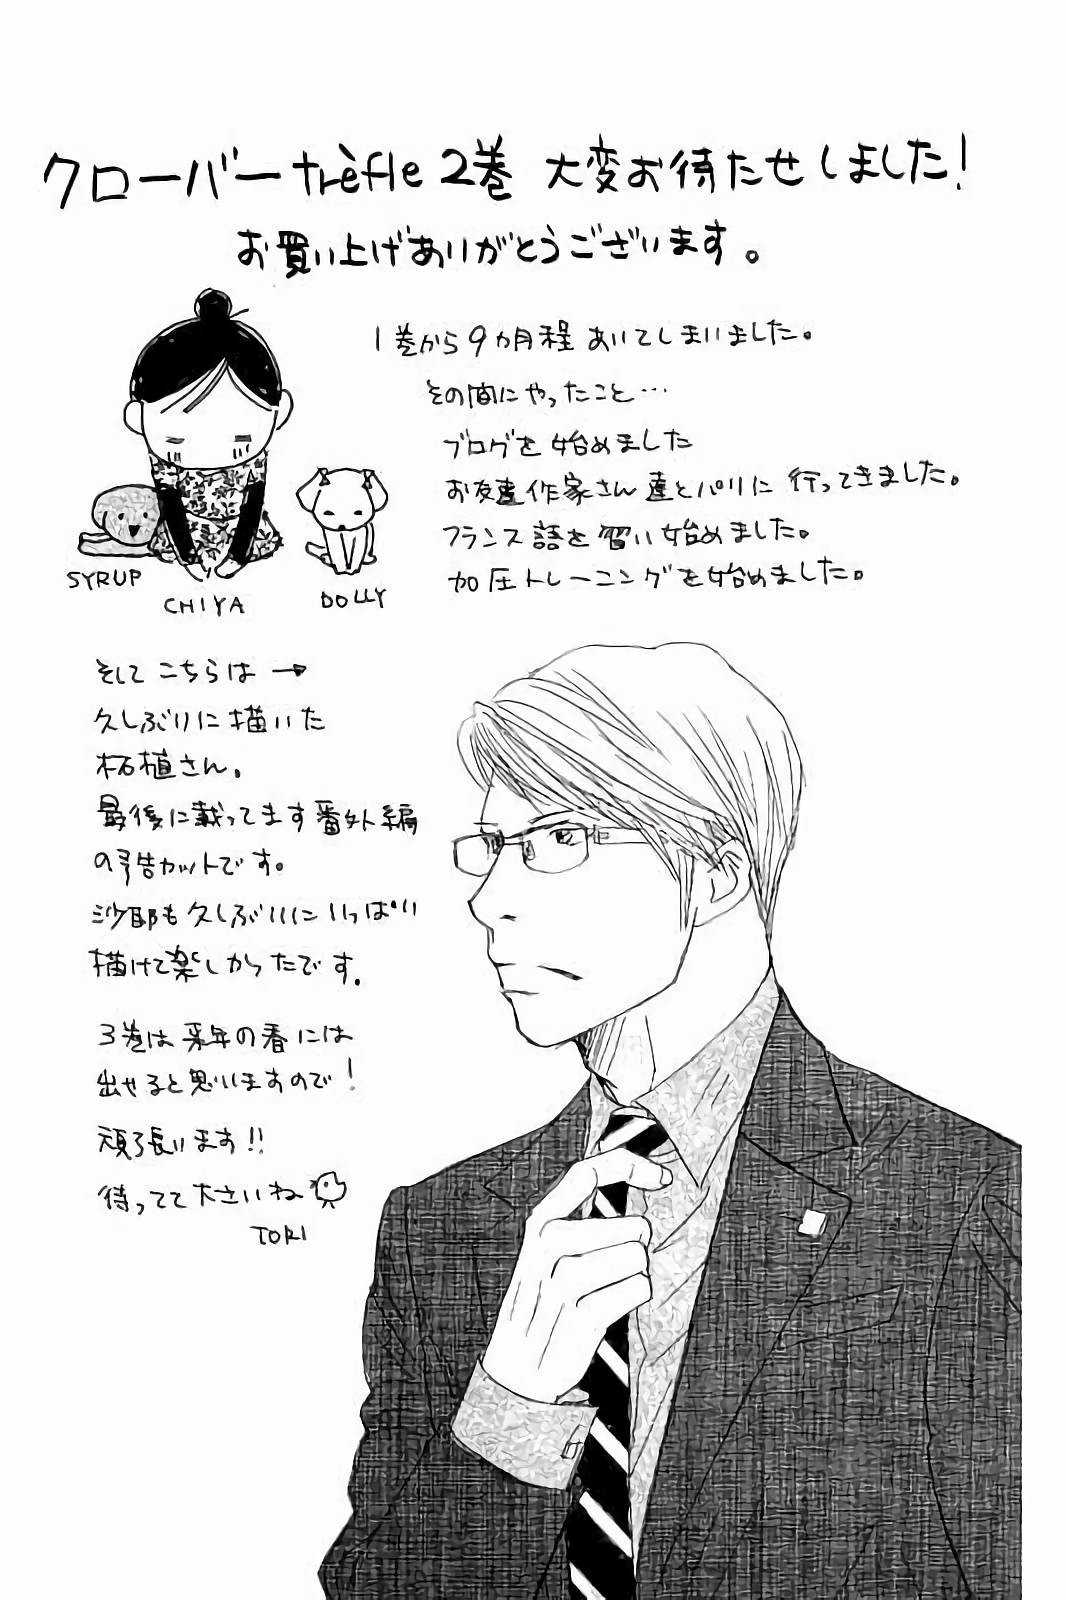 クローバー trèfle 2巻 大変お待たせしました!
お買い上げありがとうございます。
1巻から9カ月程あいてしまいました。
その間にやったこと…
ブログを始めました
お友達作家さん達とパリに行ってきました。
フランス語を習い始めました。
加圧トレーニングを始めました。
SYRUP
CHIYA
DOLLY
そして こちらは →
久しぶりに描いた
柘植さん。
最後に載ってます番外編
の予告カットです。
沙耶も久しぶりにいっぱい
描けて楽しかったです。
3巻は来年の春には
出せると思いますので!
頑張ります!!
待ってて下さいね
TORI